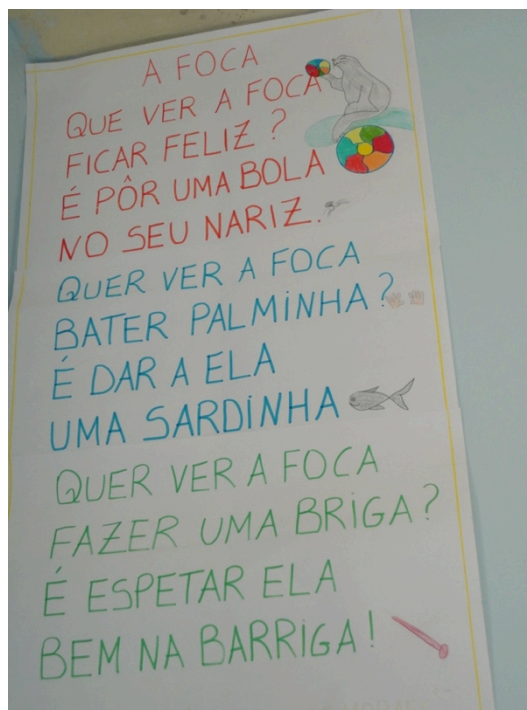 A FOCA
QUE VER A FOCA
FICAR FELIZ ?
É PÔR UMA BOLA
NO SEU NARIZ.
QUER VER A FOCA
BATER PALMINHA?
É DAR A ELA
UMA SARDINHA
QUER VER A FOCA
FAZER UMA BRIGA?
É ESPETAR ELA
BEM NA BARRIGA!